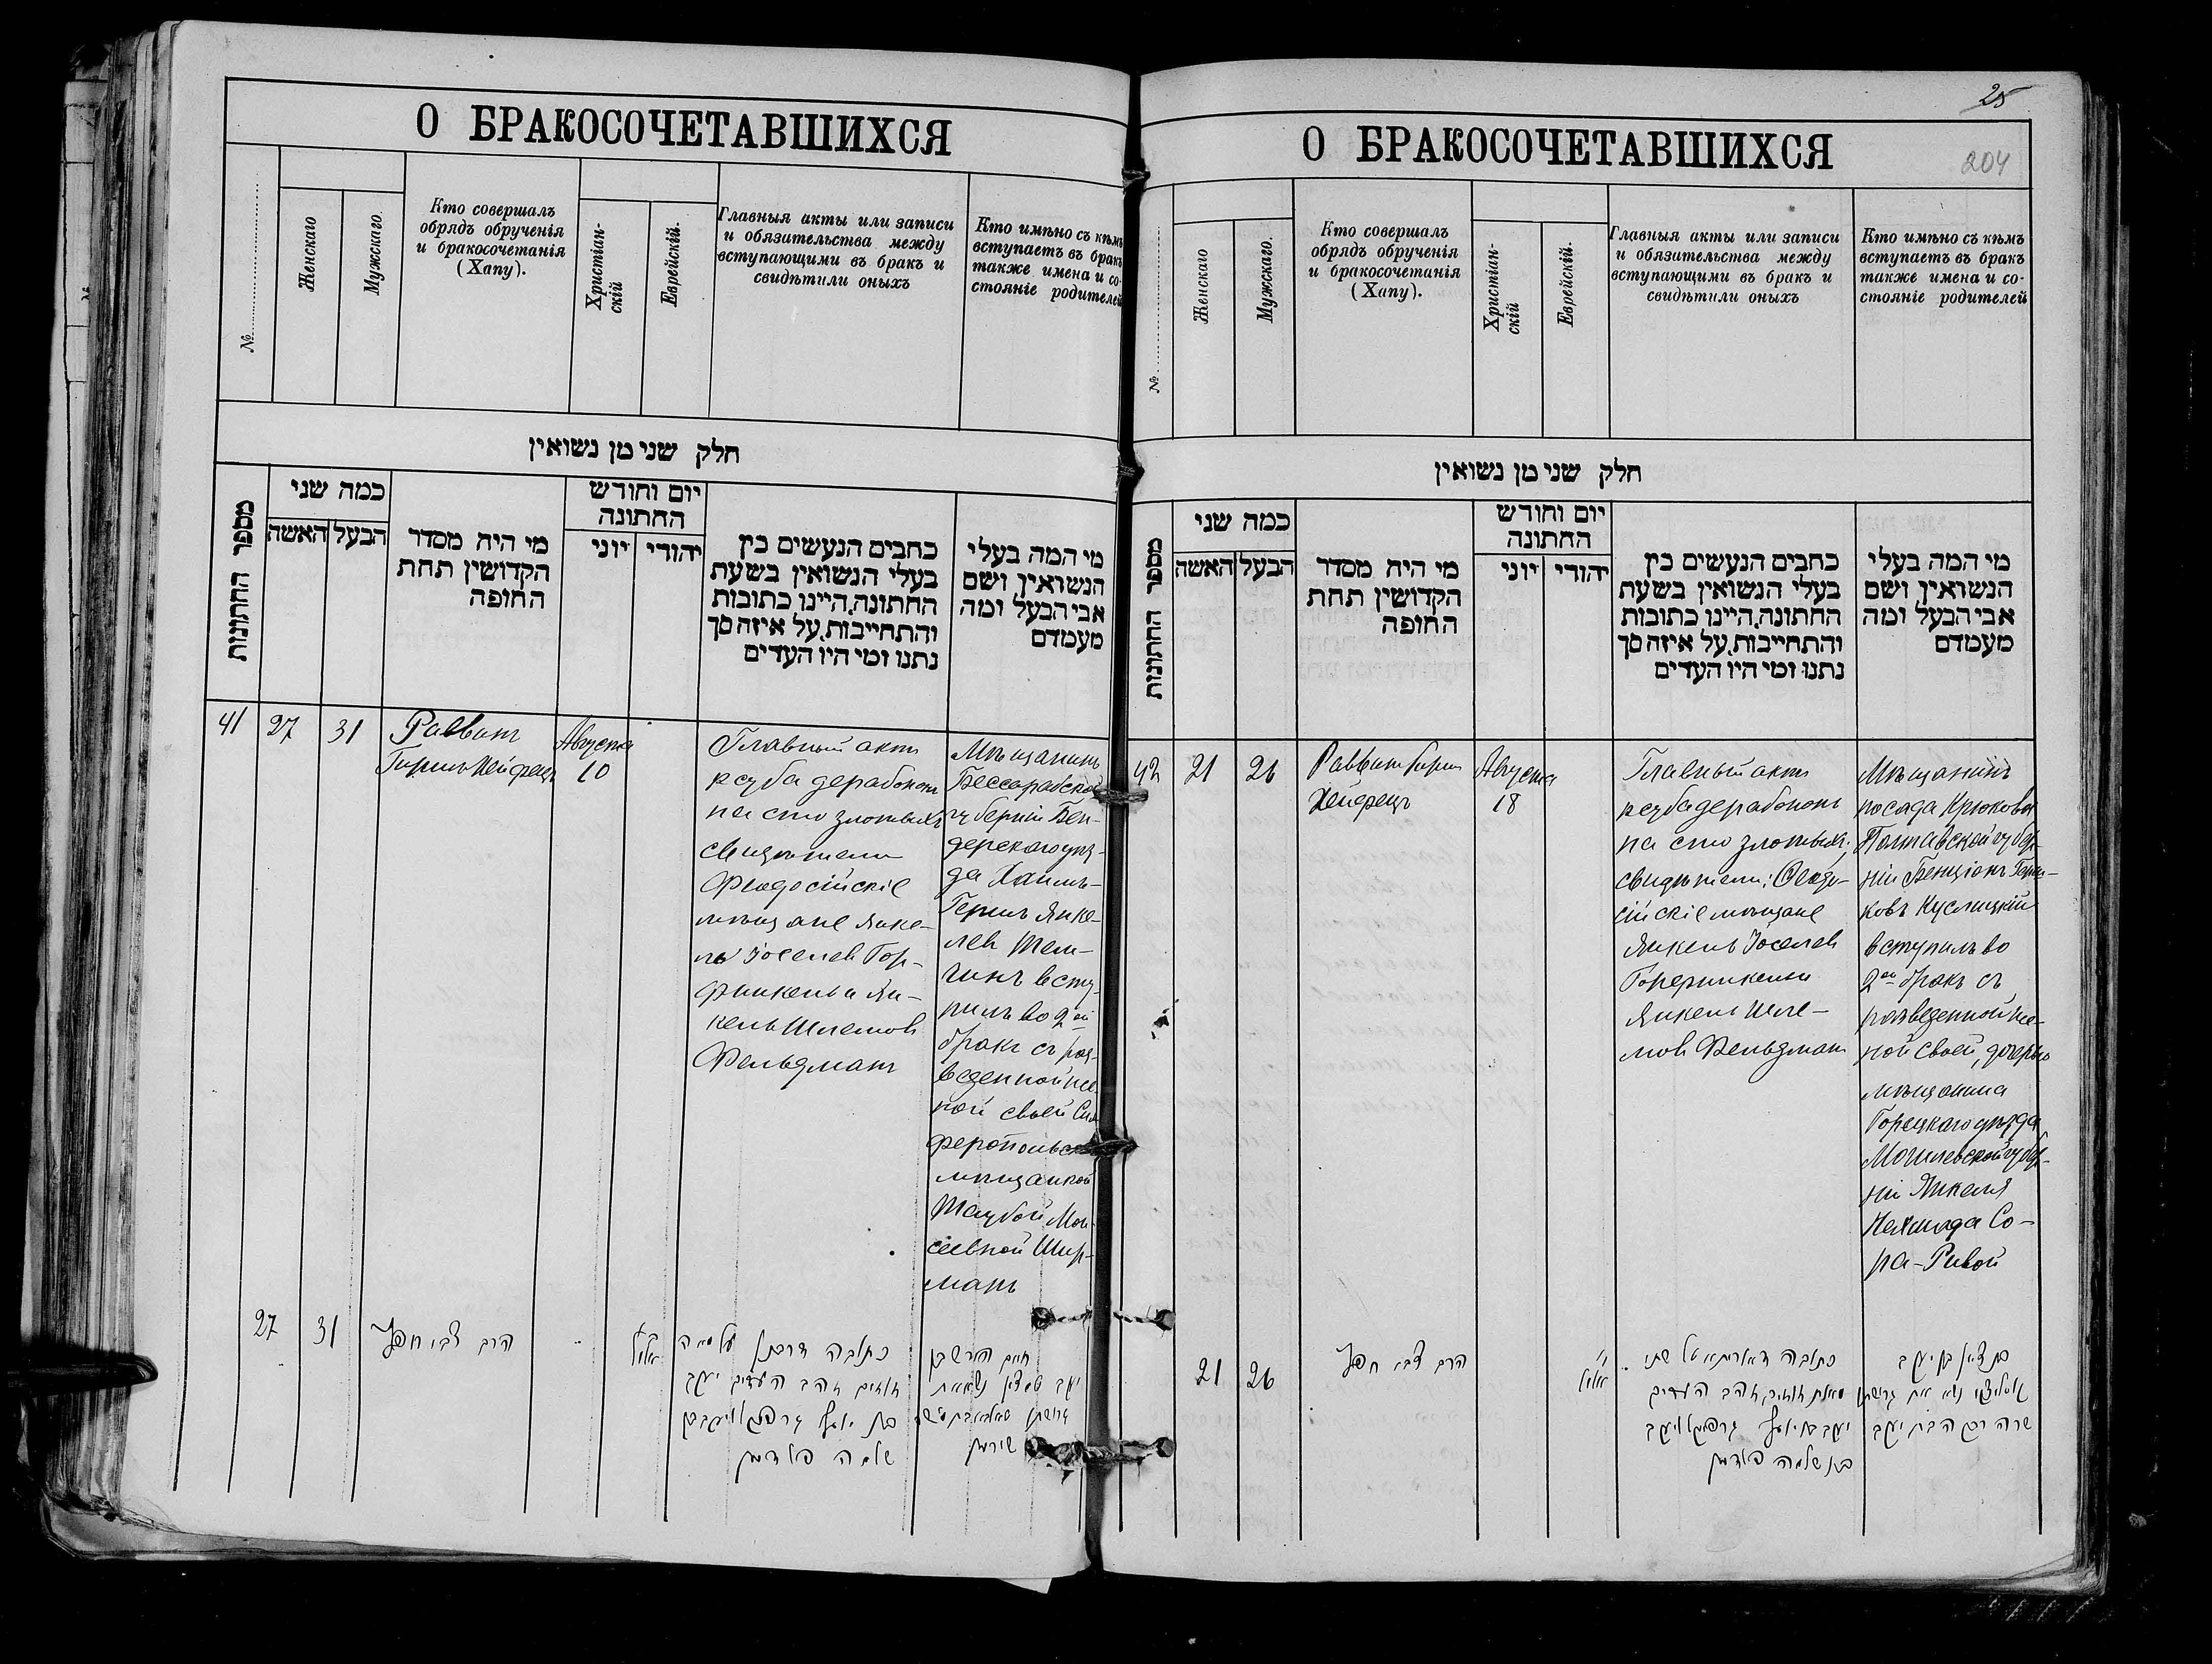 О БРАКОСОЧЕТАВШИХСЯ
№
Женскаго
Мужскаго.
Кто совершалъ
обрядъ обрученія
и бракосочетанія
(Хапу).
Христіан-
скій
Еврейскій.
Главныя акты или записи
и обязательства между
вступающими въ бракъ и
свидѣтили оныхъ
Кто имѣно съ кѣмъ
вступаетъ въ бракъ
также имена и со-
стояніе родителей
חלק שני מן נשואין
מספר החתונות
כמה שני
האשה
הבעל
מי היה מסדר
הקדושין תחת
החופה
יום וחודש
החתונה
יוני
יהודי
כתבים הנעשים בין
בעלי הנשואין בשעת
החתונה, היינו כתובות
והתחייבות, על איזה סך
נתנו ומי היו העדים
מי המה בעלי
הנשואין ושם
אבי הבעל ומה
מעמדם
41
27
31
Раввинъ
Гиршъ Хейфецъ
Августа
10
Главный актъ
ксуба дерабонон
на сто злотыхъ
свидѣтели
Феодосійскіе
мѣщане Янке-
ль Іоселев Гор-
финкель и Ян-
кель Шлемов
Фельдманъ
Мѣщанинъ
Бессарабской
губерніи Бен-
дерскаго уѣз-
да Хаимъ-
Гершъ Янке-
лев
всту-
пилъ во 2ой
бракъ съ раз-
веденной же-
ной своей Сим
феропольск
мѣщанкой
Таубой Мои-
сеевной Шир-
манъ
27
31
הרב צבי חפץ
אלול
כתובה דרבנן על מאה
זהובים והעדים יעקב
בן יוסף גרפינקל ויעקב בן
שלמה פעלדמן
חיים הירש בן
יעקב
גרושתו
שירמן
25
О БРАКОСОЧЕТАВШИХСЯ
204
№
Женскаго
Мужскаго.
Кто совершалъ
обрядъ обрученія
и бракосочетанія
(Хапу).
Христіан-
скій
Еврейскій.
Главныя акты или записи
и обязательства между
вступающими въ бракъ и
свидѣтили оныхъ
Кто имѣно съ кѣмъ
вступаетъ въ бракъ
также имена и со-
стояніе родителей
חלק שני מן נשואין
מספר החתונות
כמה שני
האשה
הבעל
מי היה מסדר
הקדושין תחת
החופה
יום וחודש
החתונה
יוני
יהודי
כתבים הנעשים בין
בעלי הנשואין בשעת
החתונה, היינו כתובות
והתחייבות, על איזה סך
נתנו ומי היו העדים
מי המה בעלי
הנשואין ושם
אבי הבעל ומה
מעמדם
42
21
26
Раввинъ Гирш
Хейфецъ
Августа
18
Главный актъ
ксуба дерабонон
на сто злотыхъ;
свидѣтели: Феодо-
сійскіе мѣщане
Янкель Іоселев
Горфинкель и
Янкель Шле-
мов Фельдман
Мѣщанинъ
посада Крюкова
Полтавской губер-
ніи Бенціонъ
ковъ Куслицкій
вступилъ во
2ой бракъ съ
разведенной же-
ной своей, дочерью
мѣщанина
Горецкаго уѣзда
Могилевской губер-
ніи Янкеля
Со-
ра-Ривой
21
26
הרב צבי חפץ
אלול
כתובה
העדים
יעקב בן יוסף גרפינקל ויעקב
בן שלמה פעלדמן
בן ציון בן יעקב
נשא את גרושתו
שרה רבקה בת יעקב